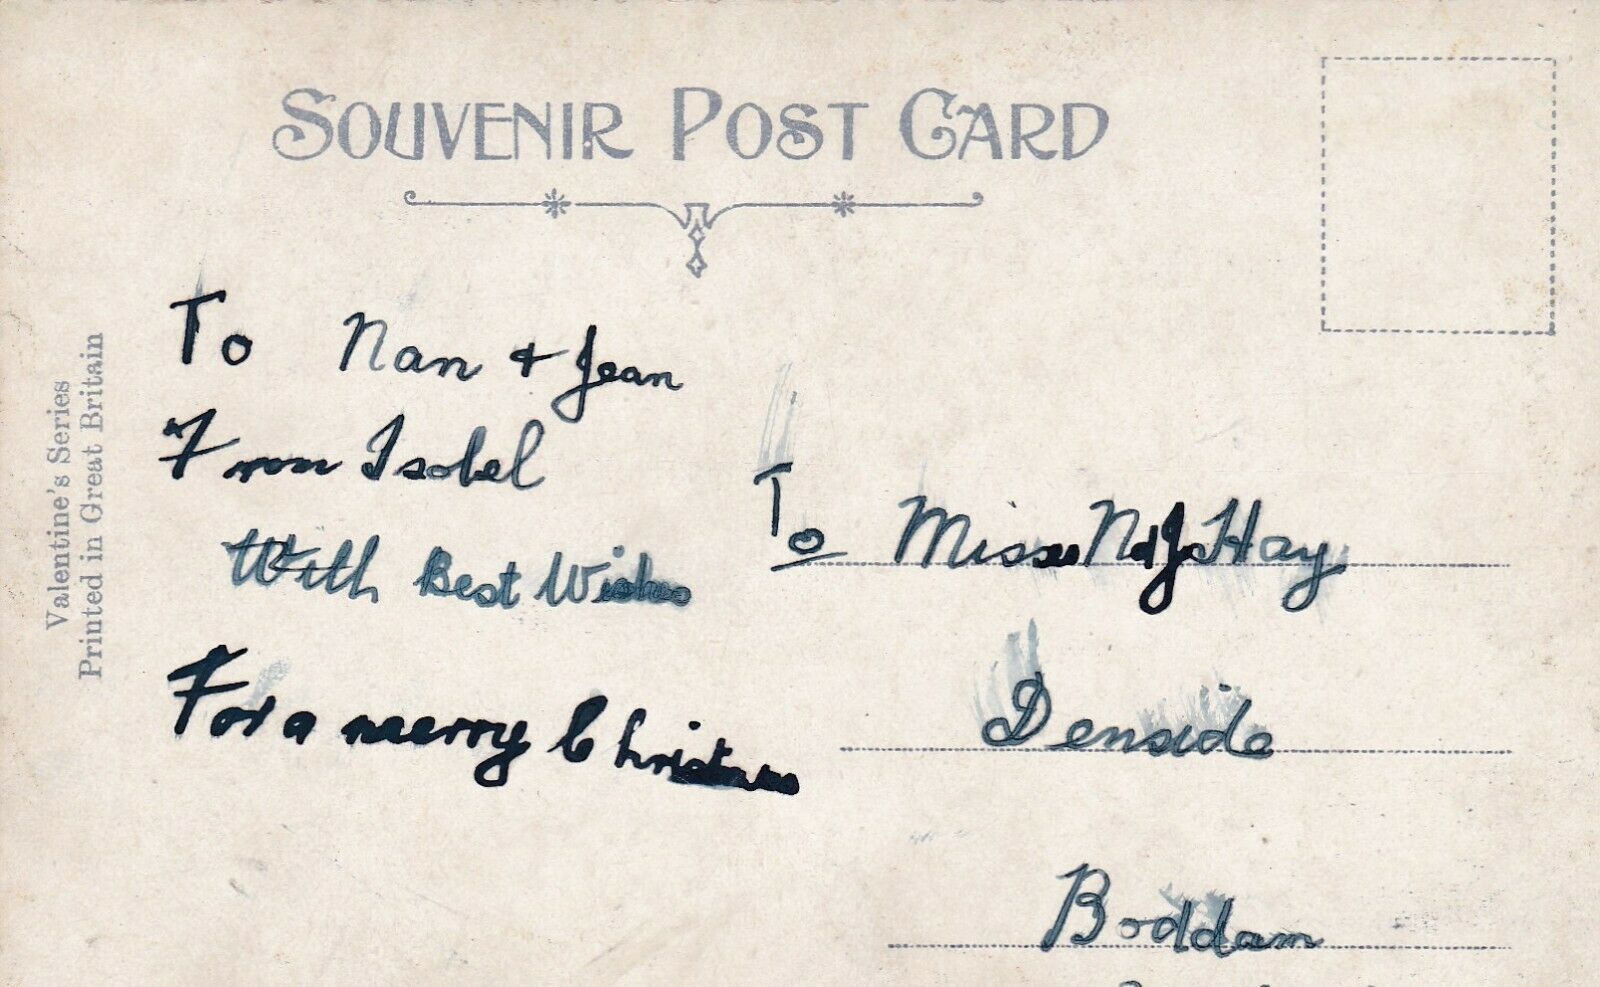 SOUVENIR POST CARD
Valentine's Series
Printed in Great Britain
To Nan + Jean
From Isobel
With Best Wishes
For a merry Christmas
To Misses N & J Hay
Denside
Boddam